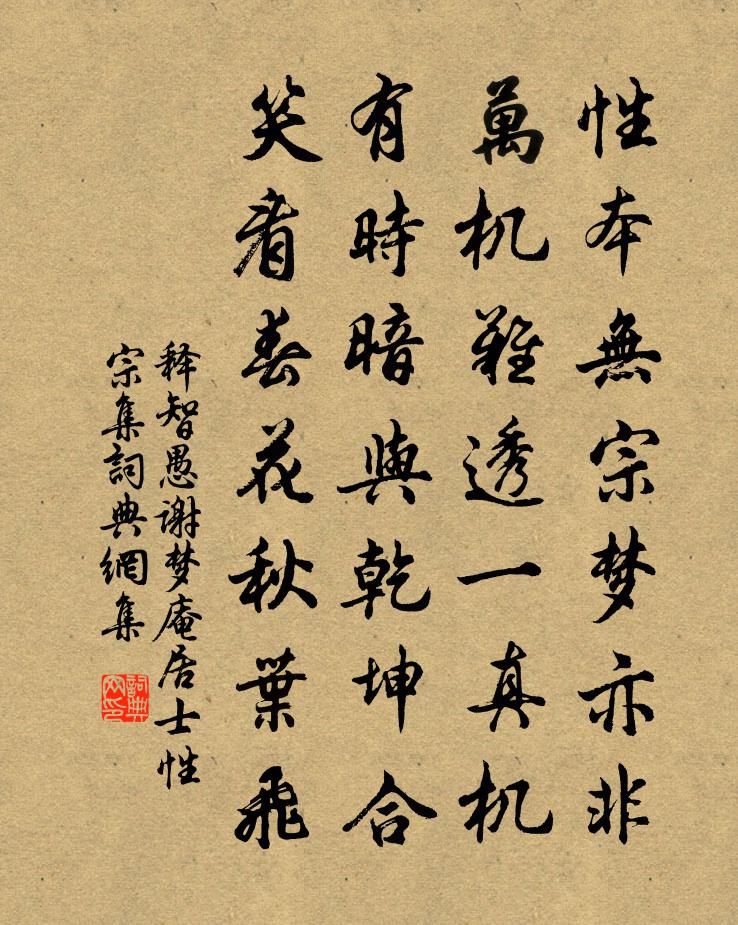 性本無宗梦亦非
萬机難透一真机
有時暗與乾坤合
笑看春花秋葉飛
释智愚谢梦庵居士性
宗集詞典網集
詞典
网印